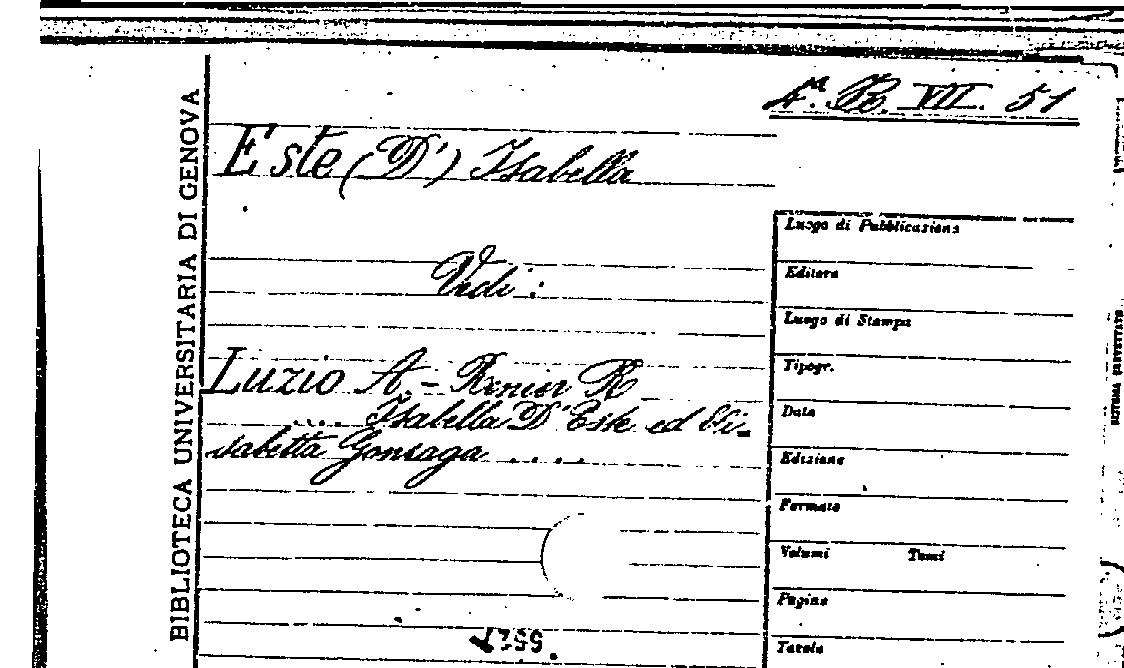 4.a B. VII. 51
BIBLIOTECA UNIVERSITARIA DI GENOVA
Este (D') Isabella
Vedi:
Luzio A. - Renier R
.... Isabella D'Este ed Eli-
sabetta Gonzaga ....
Luogo di Pubblicazione
Editore
Luogo di Stampa
Tipogr.
Data
Edizione
Formato
Volumi Tomi
Pagine
Tavole